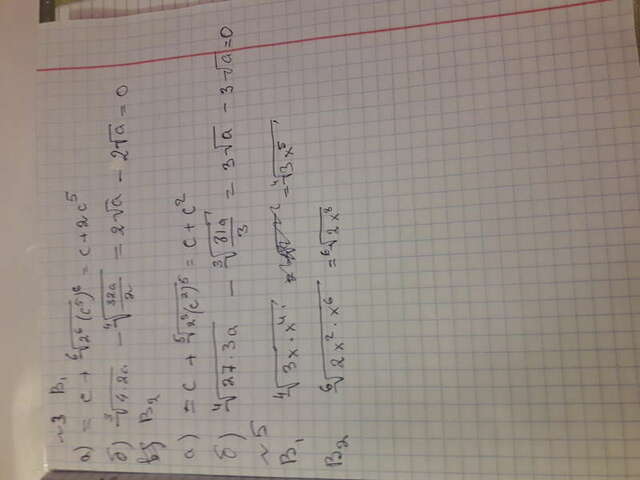 ~3 B₁
а) = c + ⁶√(2⁶(c⁵)⁶) = c + 2c⁵
б) ³√(4·2a) - ⁴√(32a/2) = 2√a - 2√a = 0
B₂
а) = c + ⁵√(2⁵(c²)⁵) = c + c²
б) ⁴√(27·3a) - ³√(81a/3) = 3√a - 3√a = 0
~5
B₁ ⁴√(3x·x⁴) = ⁴√(3x⁵)
B₂ ⁶√(2x²·x⁶) = ⁶√(2x⁸)